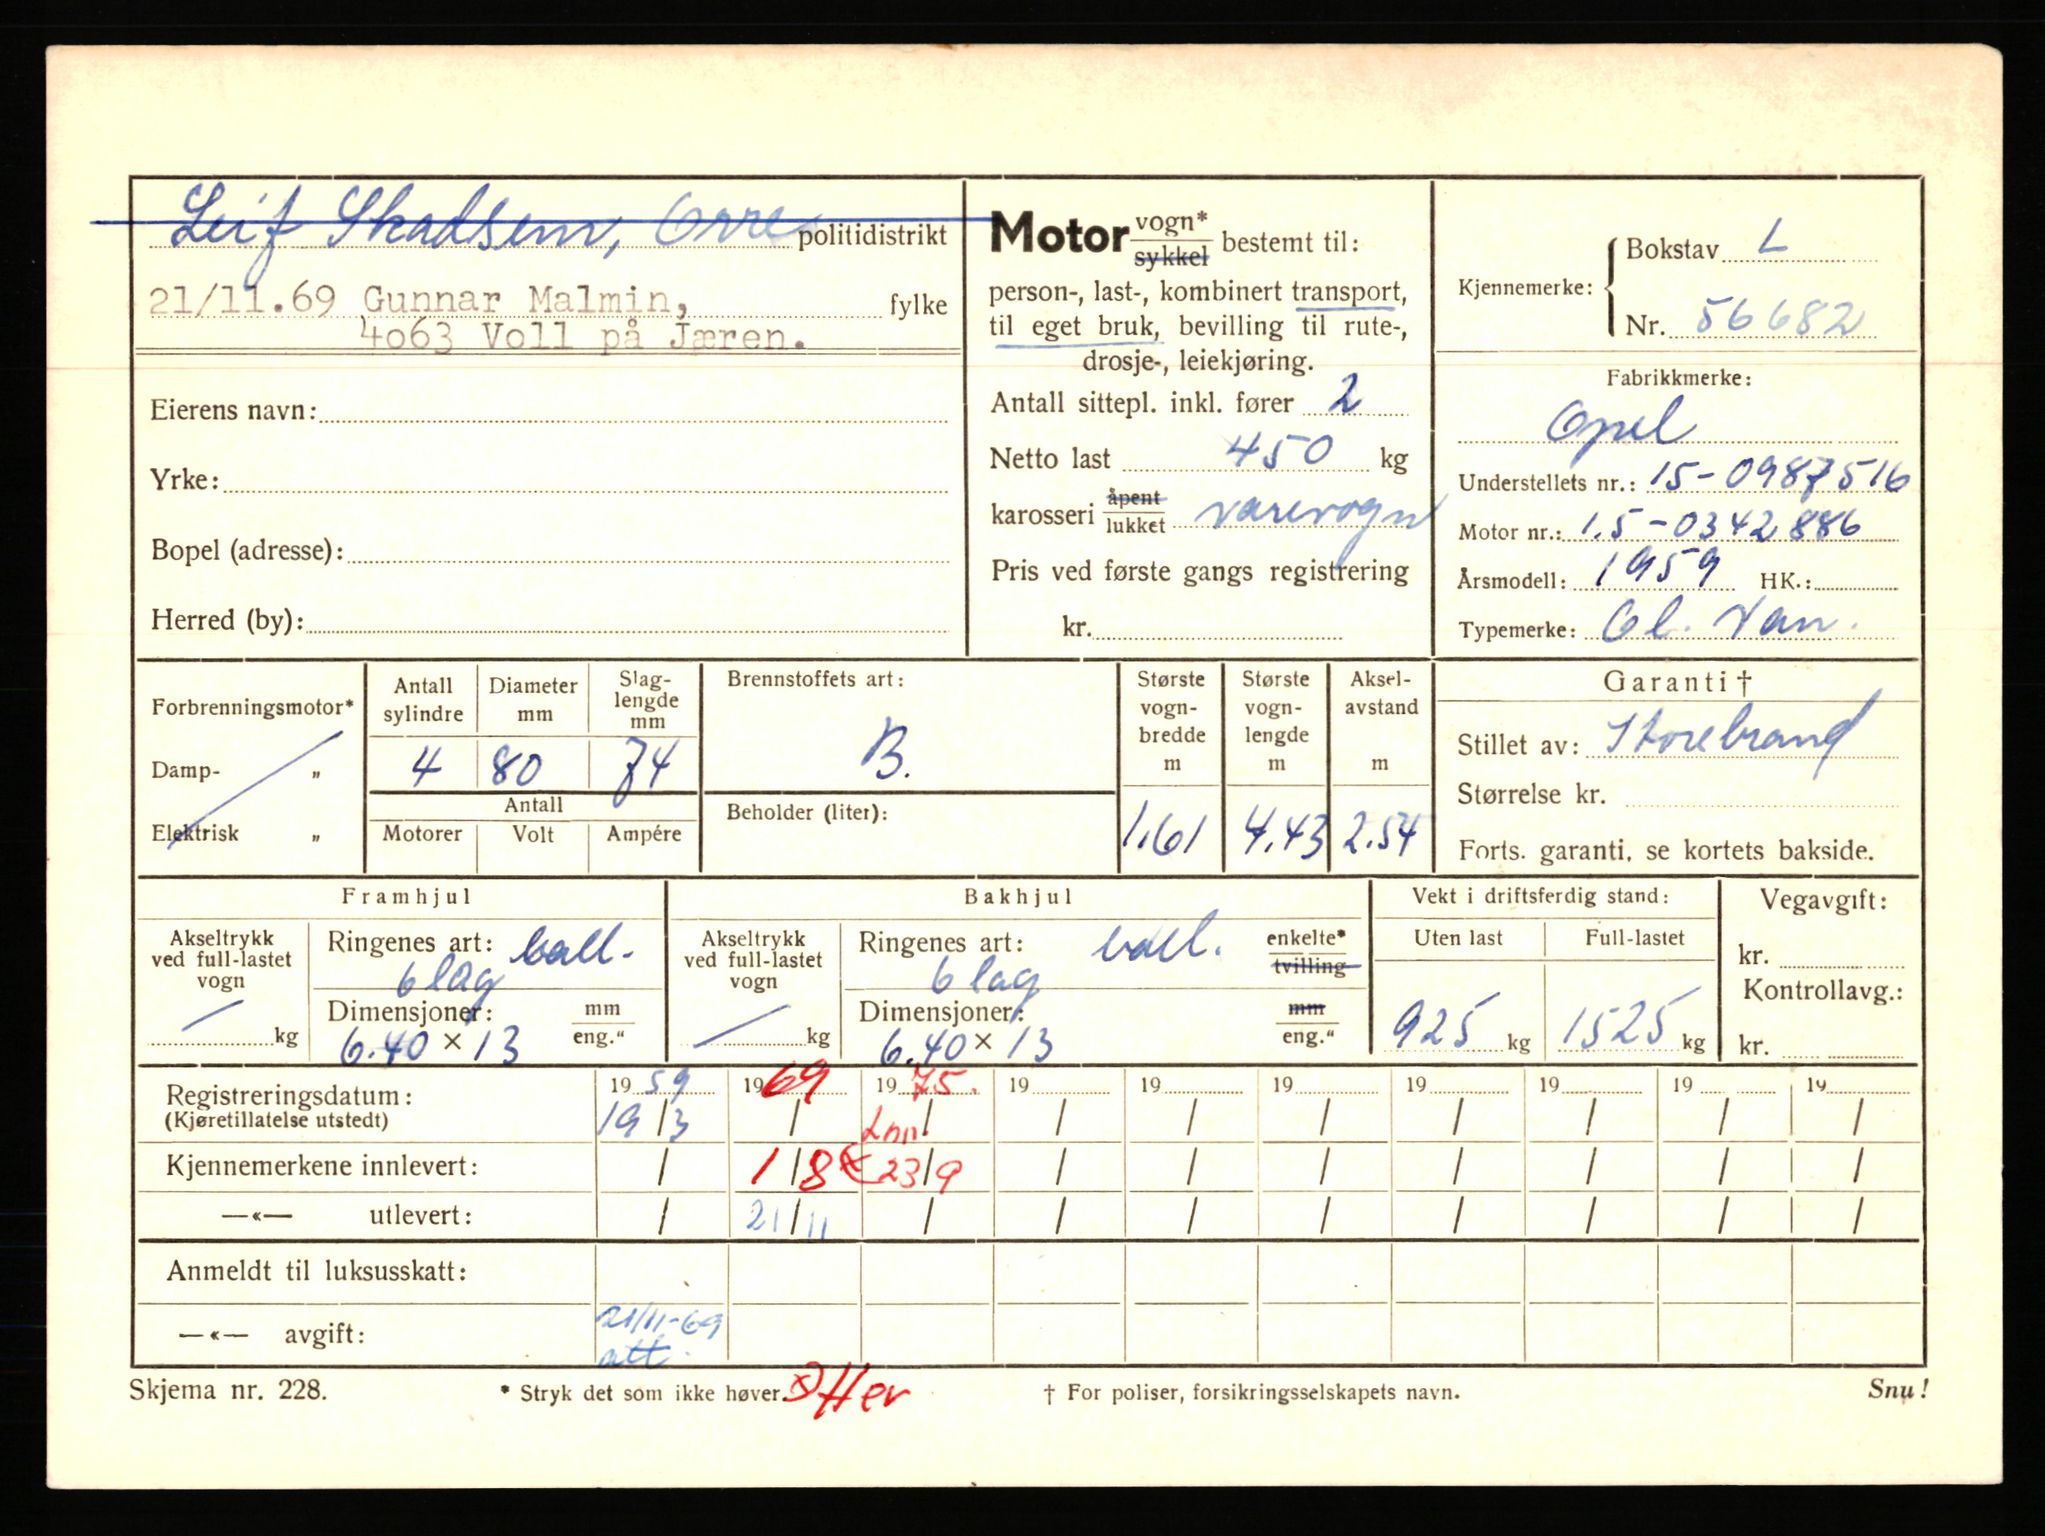 Leif Skadsem, Orre politidistrikt
21/11.69 Gunnar Malmin, fylke
4o63 Voll på Jæren.
Eierens navn:
Yrke:
Bopel (adresse):
Herred (by):
Motor vogn* sykkel bestemt til:
person-, last-, kombinert transport,
til eget bruk, bevilling til rute-,
drosje-, leiekjøring.
Antall sittepl. inkl. fører 2
Netto last 450 kg
karosseri åpent lukket varevogn
Pris ved første gangs registrering
kr.
Kjennemerke: Bokstav L
Nr. 56682
Fabrikkmerke:
Opel
Understellets nr.: 15-0987516
Motor nr.: 1.5-0342886
Årsmodell: 1959 HK.:
Typemerke: Ol. Van.
Forbrenningsmotor*
Damp- „
Elektrisk „
Antall sylindre
4
Diameter mm
80
Slag-
lengde
mm
74
Antall
Motorer Volt Ampére
Brennstoffets art:
B.
Beholder (liter):
Største
vogn-
bredde
m
1.61
Største
vogn-
lengde
m
4.43
Aksel-
avstand
m
2.54
Garanti †
Stillet av: Storebrand
Størrelse kr.
Forts. garanti, se kortets bakside.
Framhjul
Akseltrykk
ved full-lastet
vogn
kg
Ringenes art: ball.
6 lag
Dimensjoner: mm
6.40 × 13 eng.“
Bakhjul
Akseltrykk
ved full-lastet
vogn
kg
Ringenes art: ball. enkelte*
6 lag tvilling
Dimensjoner: mm
6.40 × 13 eng.“
Vekt i driftsferdig stand:
Uten last Full-lastet
925 kg 1525 kg
Vegavgift:
kr.
Kontrollavg.:
kr.
Registreringsdatum: 1959 1969 1975. 19 19 19 19 19 19 19
(Kjøretillatelse utstedt) 19/3 / / / / / / / / /
Kjennemerkene innlevert: / 1/8 23/9 / / / / / / /
—«— utlevert: / 21/11 / / / / / / / /
Anmeldt til luksusskatt:
21/11-69
—«— avgift:
att.
Skjema nr. 228. * Stryk det som ikke høver. Her † For poliser, forsikringsselskapets navn. Snu!